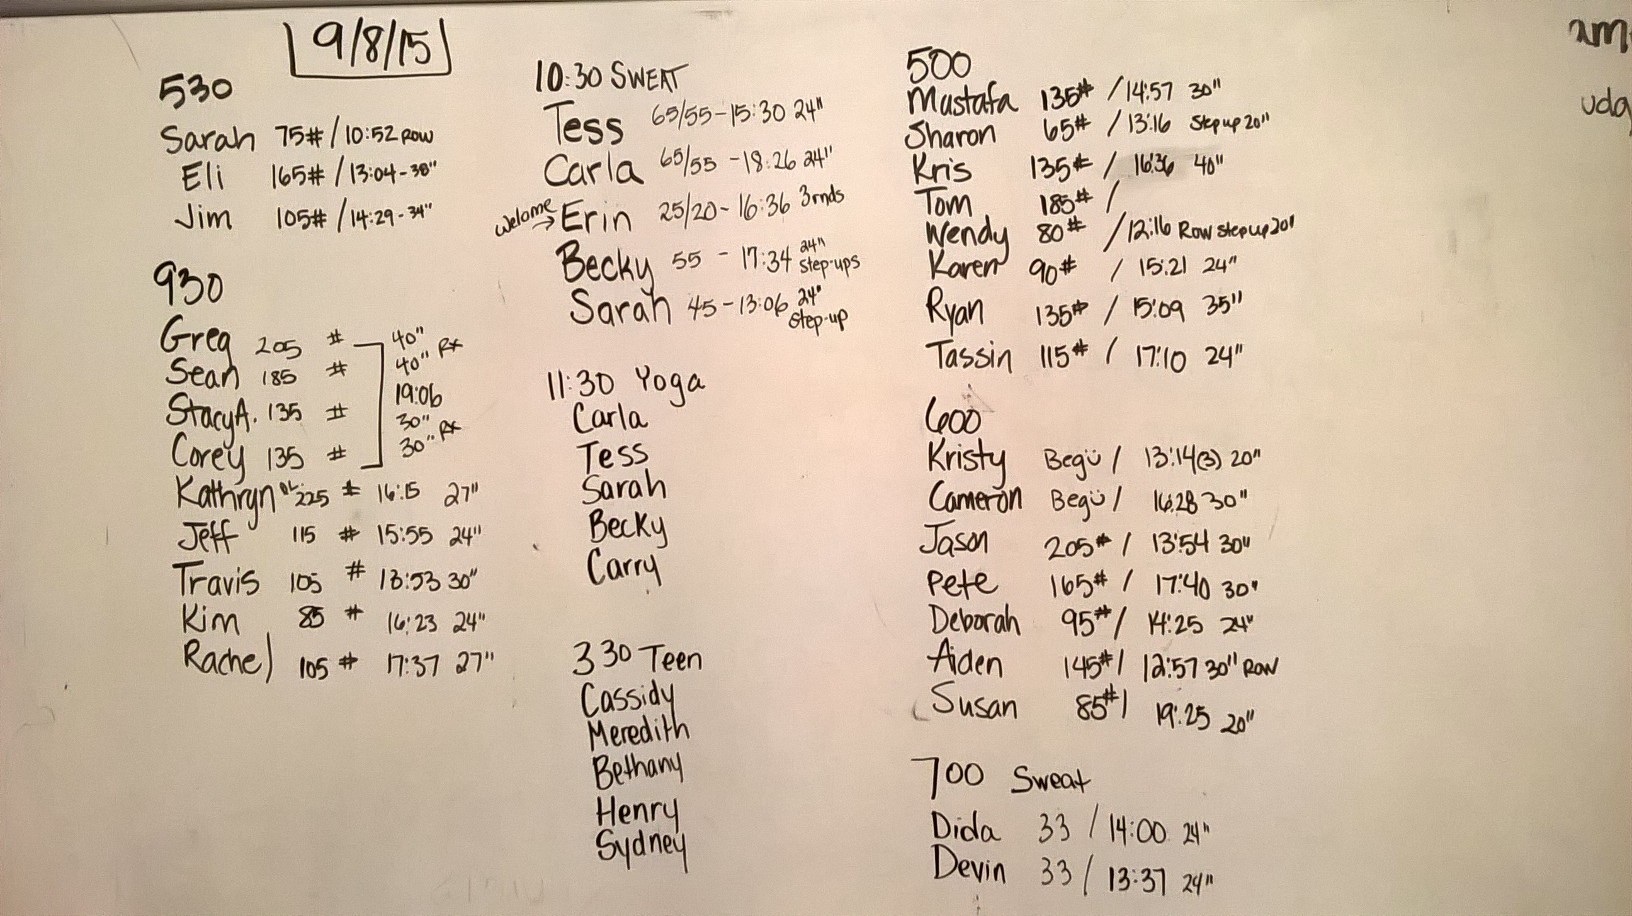 9/8/15
530
Sarah 75# / 10:52 Row
Eli 165# / 13:04-30"
Jim 105# / 14:29-34"
930
Greg 205 # 40"
Sean 185 # 40" Rx
19:06
StacyA. 135 # 30"
Corey 135 # 30" Rx
Kathryn DL 225 # 16:15 27"
Jeff 115 # 15:55 24"
Travis 105 # 13:53 30"
Kim 85 # 16:23 24"
Rachel 105 # 17:37 27"
10:30 SWEAT
Tess 65/55-15:30 24"
Carla 65/55 -18:26 24"
Welome → Erin 25/20- 16:36 3rnds
Becky 55 - 17:34 24" step-ups
Sarah 45-13:06 24" step-up
11:30 Yoga
Carla
Tess
Sarah
Becky
Carry
330 Teen
Cassidy
Meredith
Bethany
Henry
Sydney
500
Mustafa 135# / 14:57 30"
Sharon 65# / 13:16 Step up 20"
Kris 135# / 16:36 40"
Tom 185# /
Wendy 80# / 12:16 Row step up 20"
Karen 90# / 15:21 24"
Ryan 135# / 15:09 35"
Tassin 115# / 17:10 24"
600
Kristy Begü / 13:14(3) 20"
Cameron Begü / 16:28 30"
Jason 205# / 13:54 30"
Pete 165# / 17:40 30"
Deborah 95# / 14:25 24"
Aiden 145# / 12:57 30" Row
Susan 85# / 19:25 20"
700 Sweat
Dida 33 / 14:00 24"
Devin 33 / 13:37 24"
am